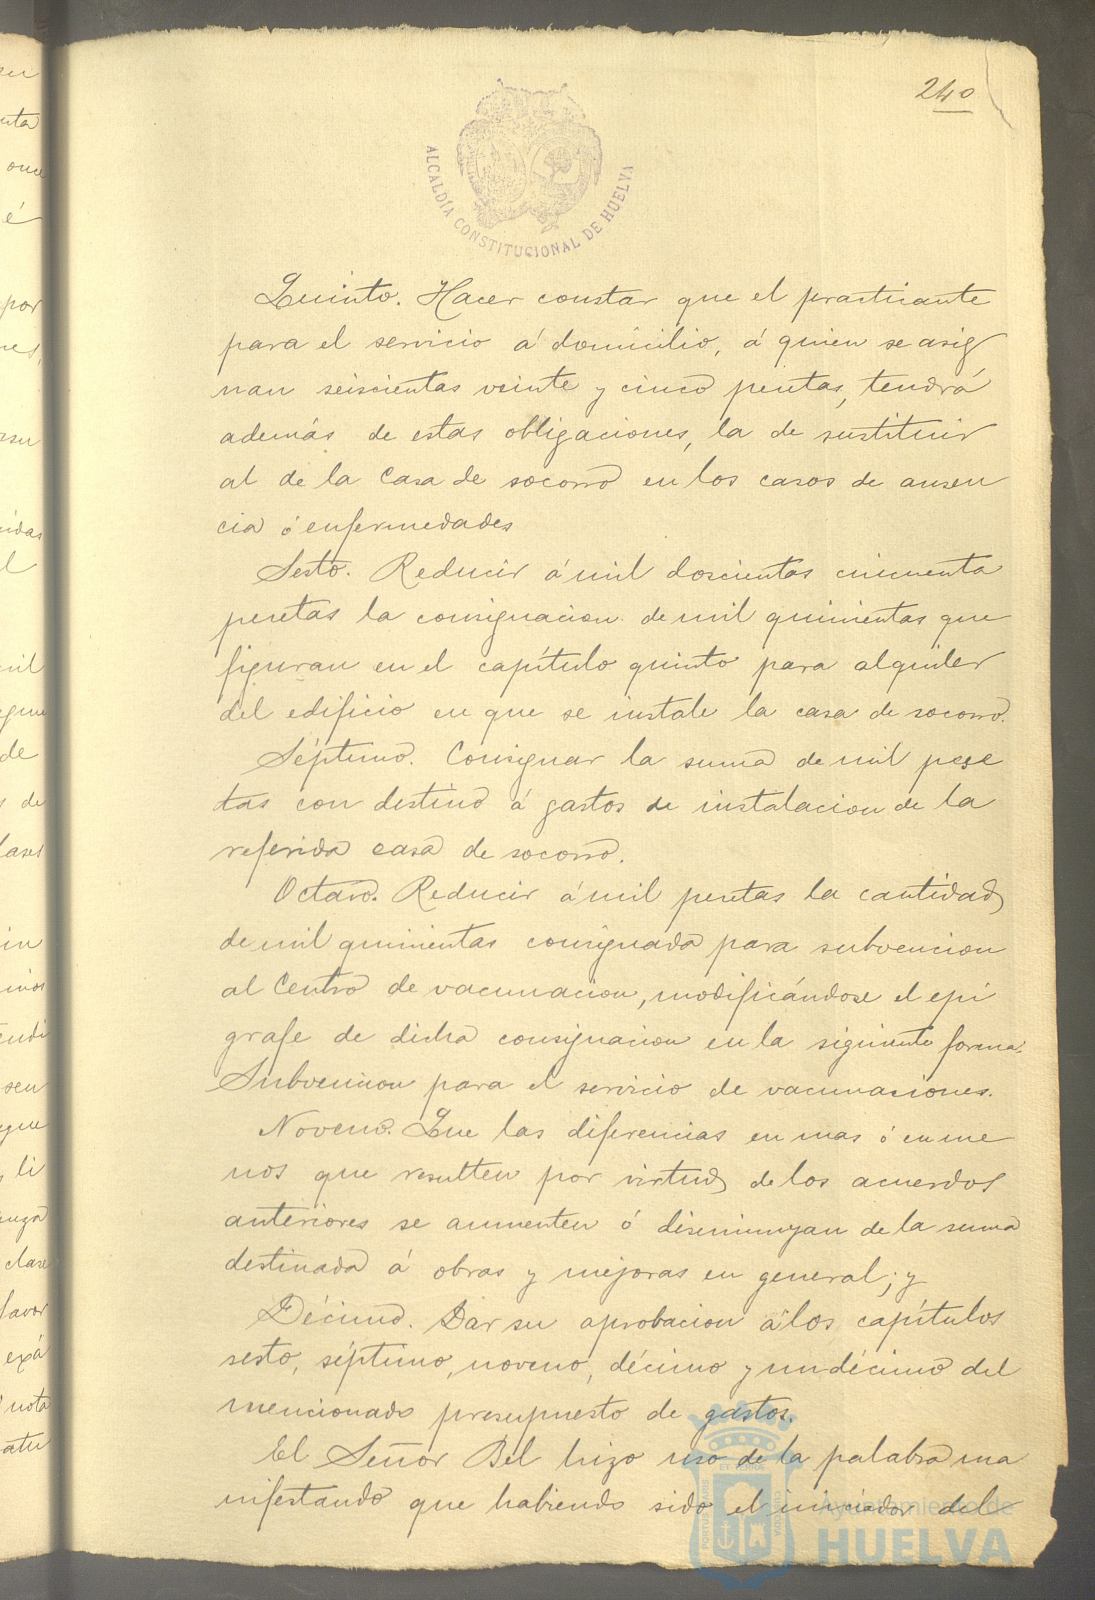 240
ALCALDÍA CONSTITUCIONAL DE HUELVA
Quinto. Hacer constar que el practicante
para el servicio á domicilio, á quien se asig
nan seiscientas veinte y cinco pesetas, tendrá
además de estas obligaciones, la de sustituir
al de la Casa de socorro en los casos de ausen
cia ó enfermedades
Sesto. Reducir á mil doscientas cincuenta
pesetas la consignacion de mil quinientas que
figuran en el capítulo quinto para alquiler
del edificio en que se instale la casa de socorro.
Séptimo. Consignar la suma de mil pese
tas con destino á gastos de instalacion de la
referida casa de socorro.
Octavo. Reducir á mil pesetas la cantidad
de mil quinientas consignada para subvencion
al Centro de vacunacion, modificándose el epí
grafe de dicha consignacion en la siguiente forma.
Subvencion para el servicio de vacunaciones.
Noveno. Que las diferencias en mas ó en me
nos que resulten por virtud de los acuerdos
anteriores se aumenten ó disminuyan de la suma
destinada á obras y mejoras en general; y
Décimo. Dar su aprobacion á los capítulos
sesto, séptimo, noveno, décimo y undécimo del
mencionado presupuesto de gastos.
El Señor Bel hizo uso de la palabra ma
nifestando que habiendo sido el iniciador del
Ayuntamiento de
HUELVA